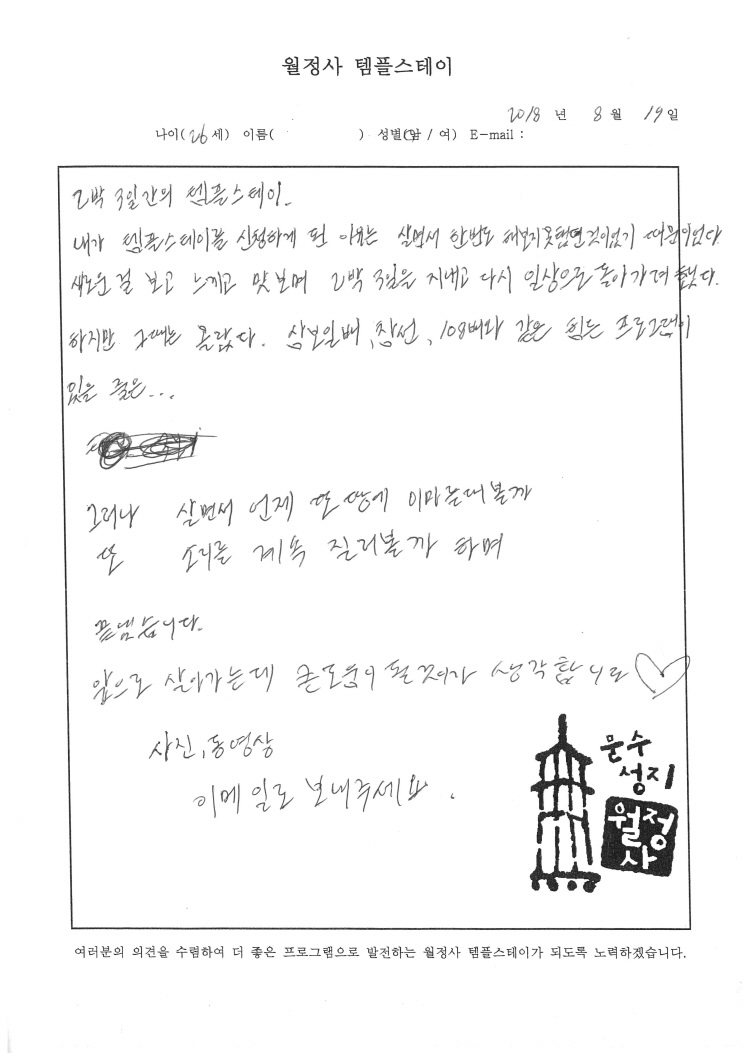 월정사 템플스테이
2018 년 8 월 19 일
나이( 26 세) 이름( ) 성별(남 / 여) E-mail :
2박 3일간의 템플스테이.
내가 템플스테이를 신청하게 된 이유는 살면서 한번도 해보지못했던것이었기 때문이었다.
새로운 걸 보고 느끼고 맛보며 2박 3일을 지내고 다시 일상으로 돌아가려 했다.
하지만 그때는 몰랐다. 삼보일배, 참선, 108배와 같은 힘든 프로그램이
있을 줄은...
그러나 살면서 언제 또 땅에 이마를대볼까
또 소리를 계속 질러볼까 하며
끝냈습니다.
앞으로 살아가는데 큰도움이 될것이라 생각합니다
사진, 동영상
이메일로 보내주세요.
문수
성지
월정
사
여러분의 의견을 수렴하여 더 좋은 프로그램으로 발전하는 월정사 템플스테이가 되도록 노력하겠습니다.